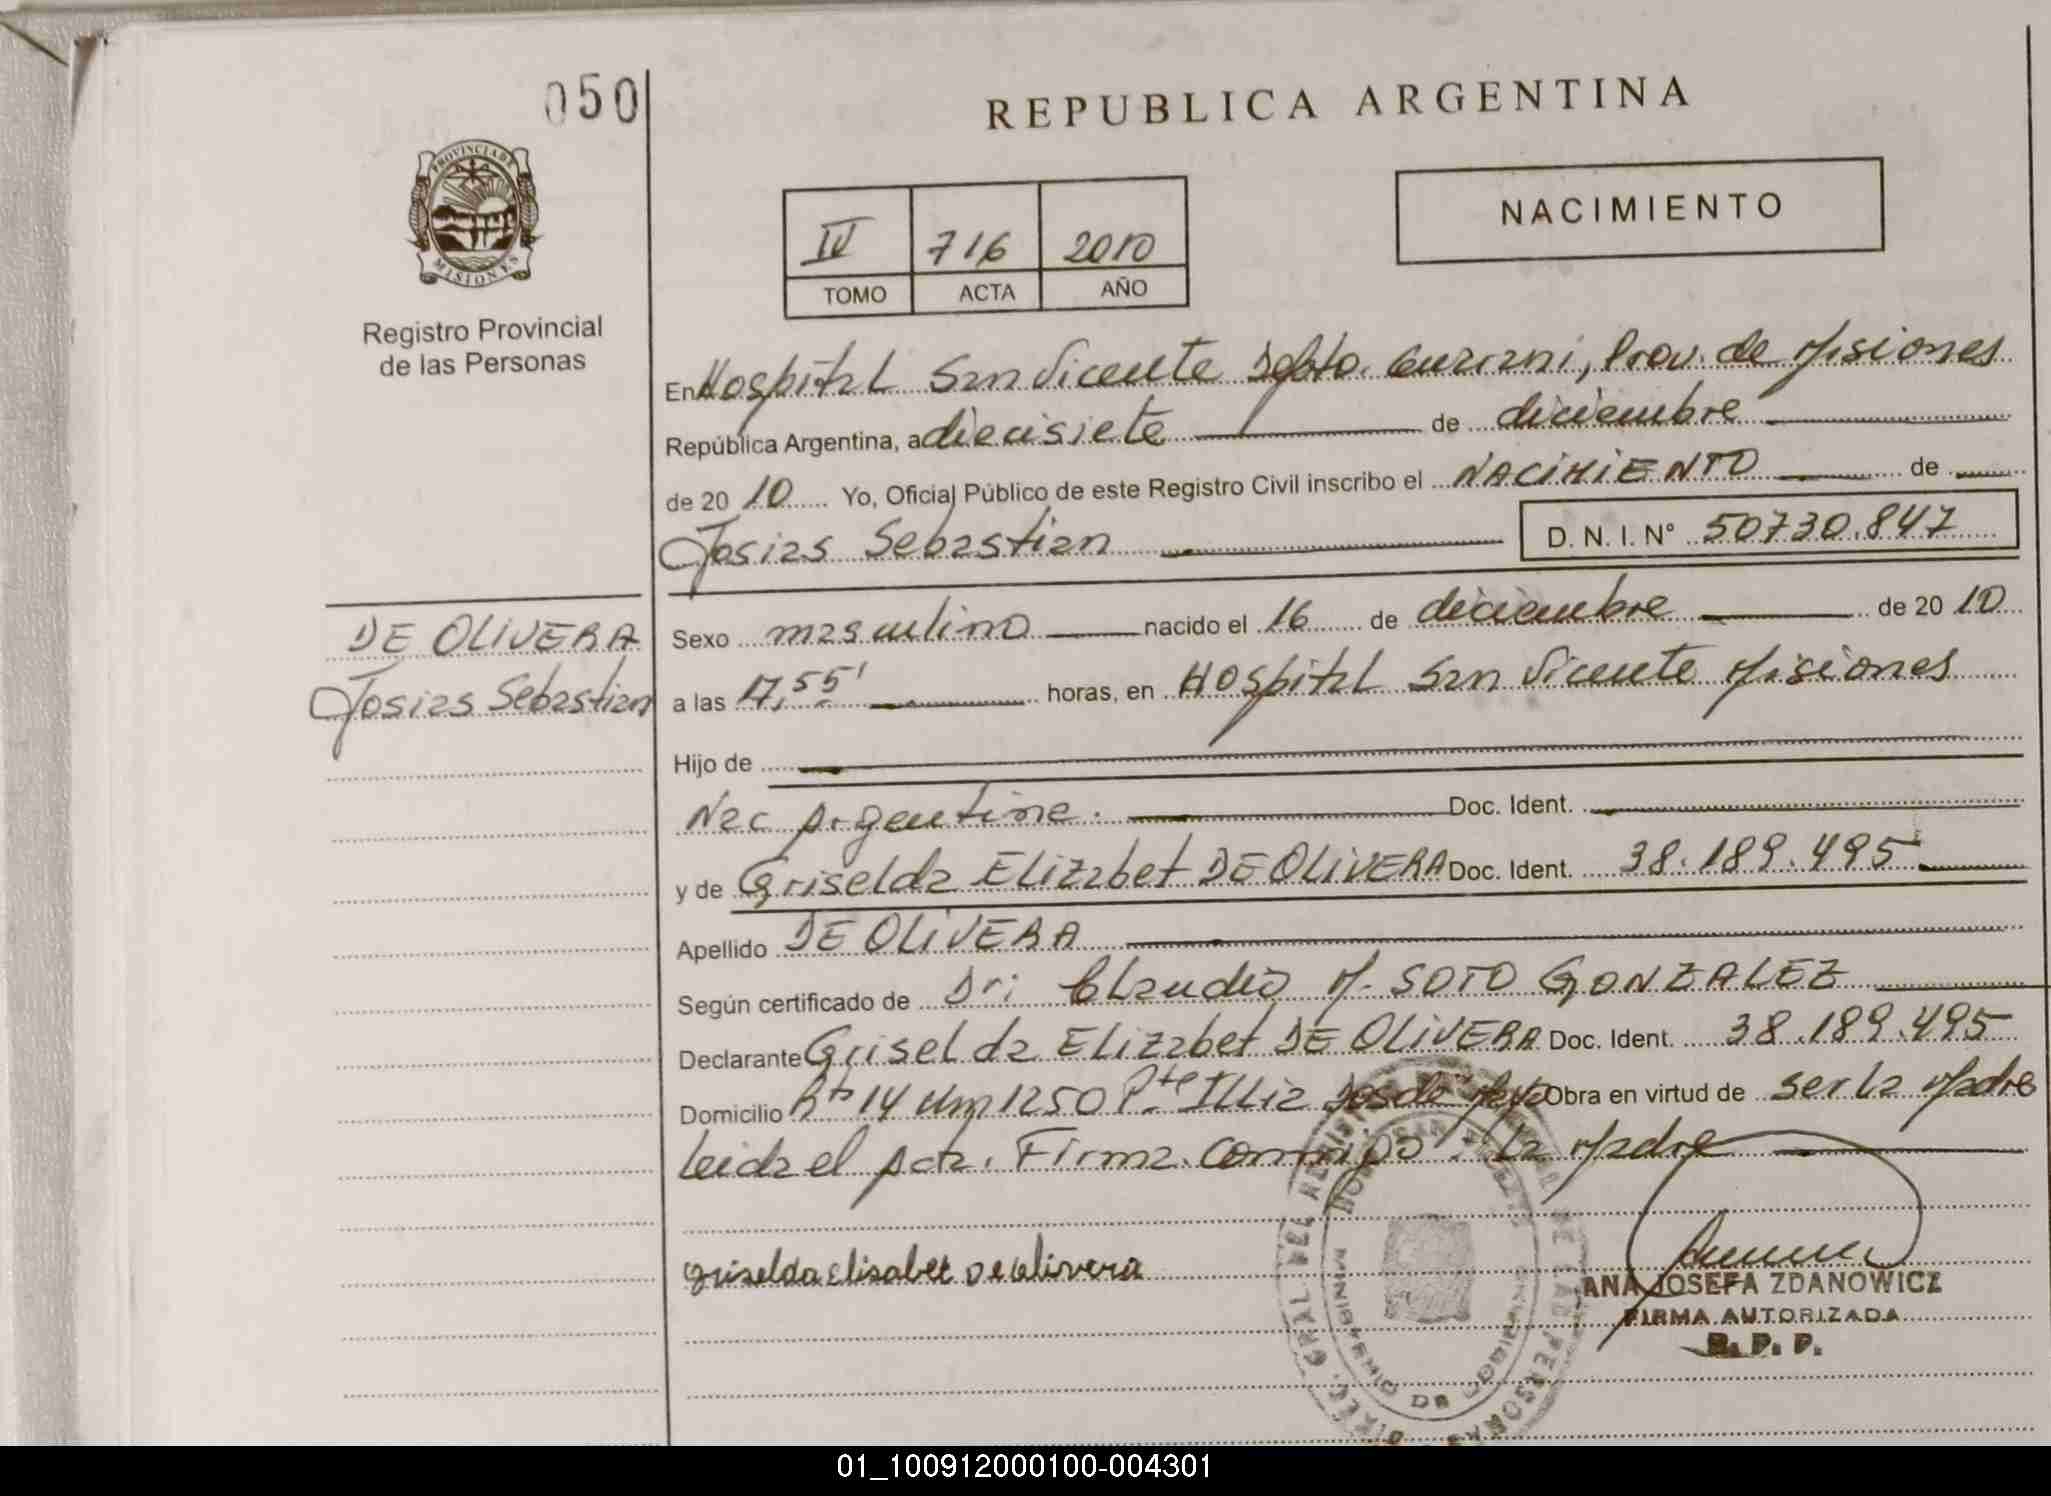 050
REPUBLICA ARGENTINA
PROVINCIA DE
MISIONES
Registro Provincial
de las Personas
IV 716 2010
TOMO ACTA AÑO
NACIMIENTO
En Hospital San Vicente Depto. Guarani, Prov. de Misiones
República Argentina, a diecisiete de diciembre
de 20 10 Yo, Oficial Público de este Registro Civil inscribo el NACIMIENTO de
Josias Sebastian D. N. I. N° 50730.847
DE OLIVERA
Josias Sebastian
Sexo masculino nacido el 16 de diciembre de 20 10
a las 17,55' horas, en Hospital San Vicente Misiones
Hijo de
Nac Argentina. Doc. Ident.
y de Griselda Elizabet DE OLIVERA Doc. Ident. 38.189.495
Apellido DE OLIVERA
Según certificado de Dr: Claudio M. SOTO GONZALEZ
Declarante Griselda Elizabet DE OLIVERA Doc. Ident. 38.189.495
Domicilio Rta 14 Km 1250 Pte Illia Obra en virtud de ser la Madre
Leida el Acta. Firma. Conmigo: La Madre
Griselda Elisabet De Olivera
ANA JOSEFA ZDANOWICZ
FIRMA AUTORIZADA
R. P. P.
01_100912000100-004301